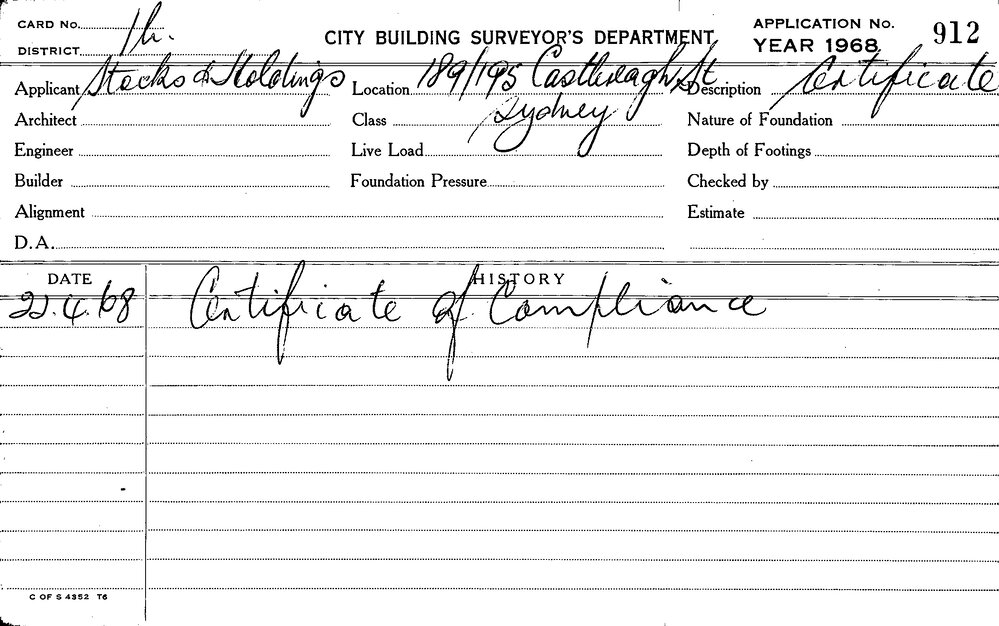 CARD No. 1h.
DISTRICT
CITY BUILDING SURVEYOR'S DEPARTMENT
APPLICATION No. 912
YEAR 1968
Applicant Stocks & Holdings Location 189/195 Castlereagh St Description Certificate
Architect Class Sydney Nature of Foundation
Engineer Live Load Depth of Footings
Builder Foundation Pressure Checked by
Alignment Estimate
D.A.
DATE HISTORY
22.4.68 Certificate of Compliance
C OF S 4352 T6